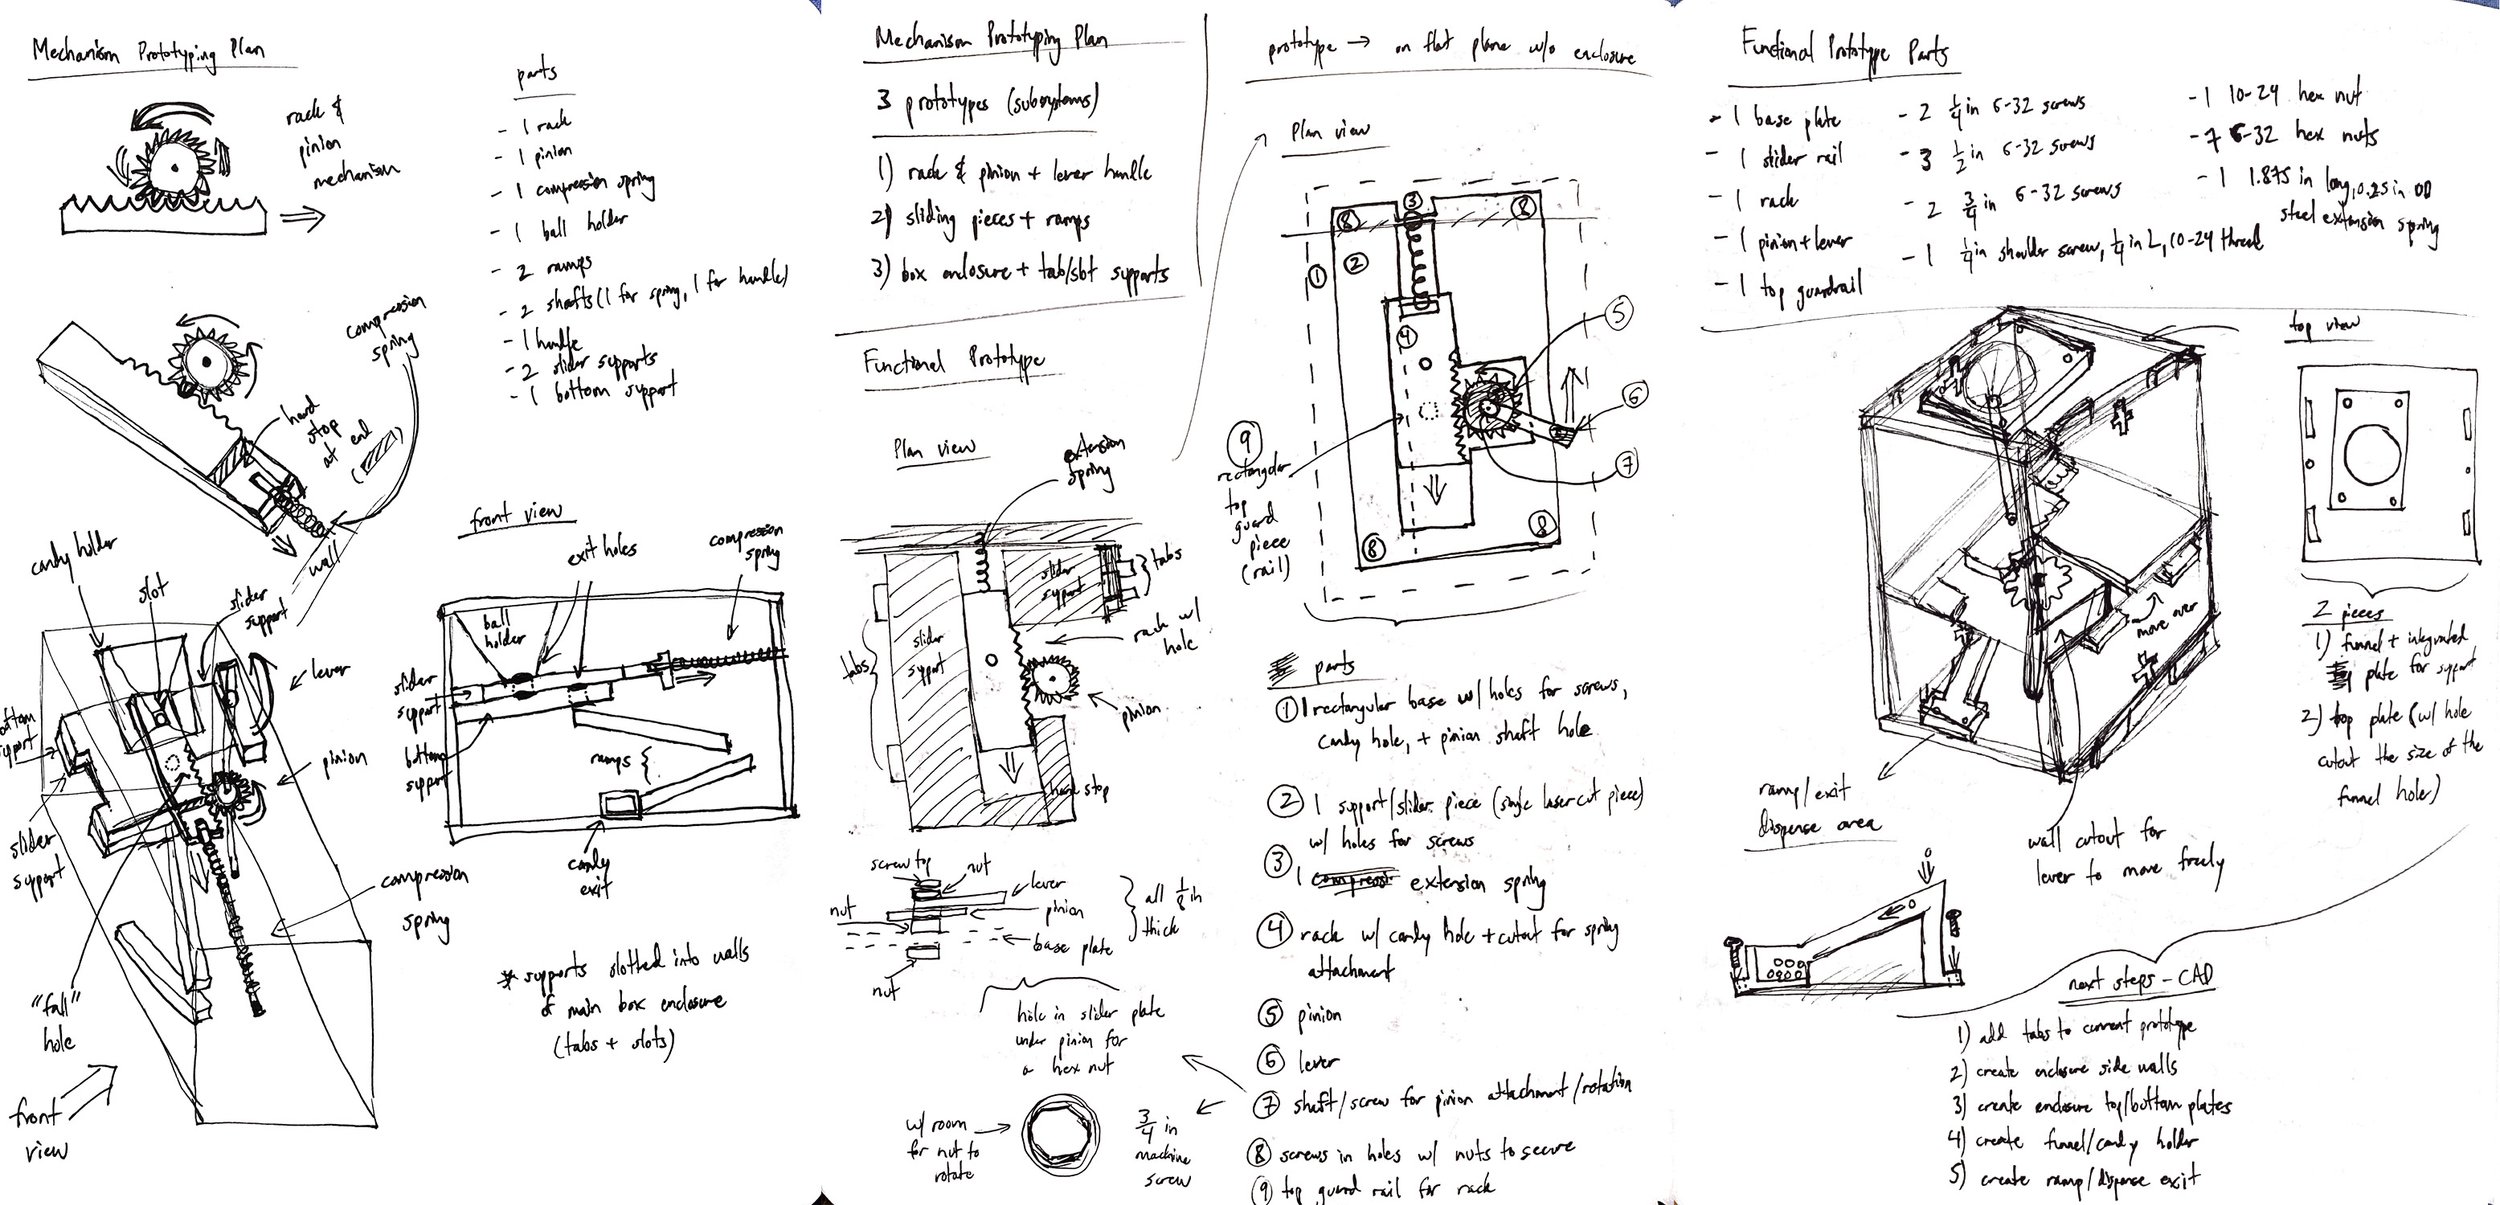 Mechanism Prototyping Plan
rack &
pinion
mechanism
parts
- 1 rack
- 1 pinion
- 1 compression spring
- 1 ball holder
- 2 ramps
- 2 shafts (1 for spring, 1 for handle)
- 1 handle
- 2 slider supports
- 1 bottom support
compression
spring
hard
stop
at
end
wall
candy holder
slot
slider
support
lever
bottom
support
pinion
slider
support
compression
spring
"fall"
hole
front
view
front view
exit holes
compression
spring
ball
holder
slider
support
bottom
support
ramps
candy
exit
* supports slotted into walls
of main box enclosure
(tabs + slots)
Mechanism Prototyping Plan
3 prototypes (subsystems)
1) rack & pinion + lever handle
2) sliding pieces + ramps
3) box enclosure + tab/slot supports
Functional Prototype
Plan view
extension
spring
slider
support
tabs
slider
support
tabs
rack w/
hole
pinion
hard stop
screw top
nut
lever
pinion
nut
base plate
nut
all 1/8 in
thick
hole in slider plate
under pinion for
a hex nut
w/ room
for nut to
rotate
3/4 in
machine
screw
prototype → on flat plane w/o enclosure
Plan view
3
8
8
1
2
4
5
6
7
8
8
9
rectangular
top
guard
piece
(rail)
parts
1 1 rectangular base w/ holes for screws,
candy hole, + pinion shaft hole
2 1 support/slider piece (single laser cut piece)
w/ holes for screws
3 1 extension spring
4 rack w/ candy hole + cutout for spring
attachment
5 pinion
6 lever
7 shaft/screw for pinion attachment/rotation
8 screws in holes w/ nuts to secure
9 top guard rail for rack
Functional Prototype Parts
- 1 base plate
- 1 slider rail
- 1 rack
- 1 pinion + lever
- 1 top guardrail
- 2 1/4 in 6-32 screws
- 3 1/2 in 6-32 screws
- 2 3/4 in 6-32 screws
- 1 1/4 in shoulder screw, 1/4 in L, 10-24 thread
- 1 10-24 hex nut
- 7 6-32 hex nuts
- 1 1.875 in long, 0.25 in OD
steel extension spring
top view
move over
2 pieces
1) funnel + integrated
plate for support
2) top plate (w/ hole
cutout the size of the
funnel hole)
ramp/exit
dispense area
wall cutout for
lever to move freely
next steps - CAD
1) add tabs to current prototype
2) create enclosure side walls
3) create enclosure top/bottom plates
4) create funnel/candy holder
5) create ramp/dispense exit